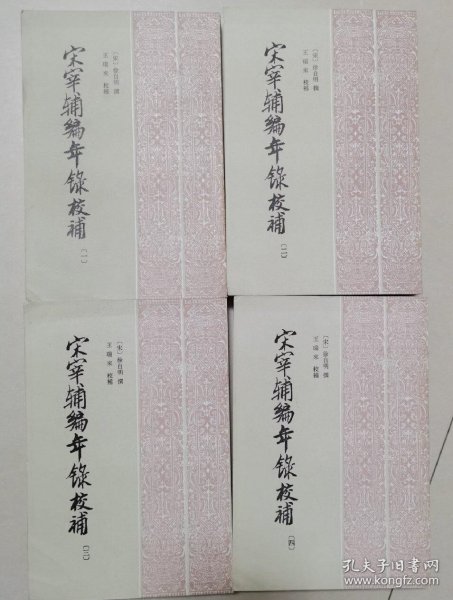 宋宰辅编年录校补
〔一〕
〔宋〕徐自明 撰
王瑞来 校补
宋宰辅编年录校补
〔二〕
〔宋〕徐自明 撰
王瑞来 校补
宋宰辅编年录校补
〔三〕
〔宋〕徐自明 撰
王瑞来 校补
宋宰辅编年录校补
〔四〕
〔宋〕徐自明 撰
王瑞来 校补
孔夫子旧书网
www.kongfz.com